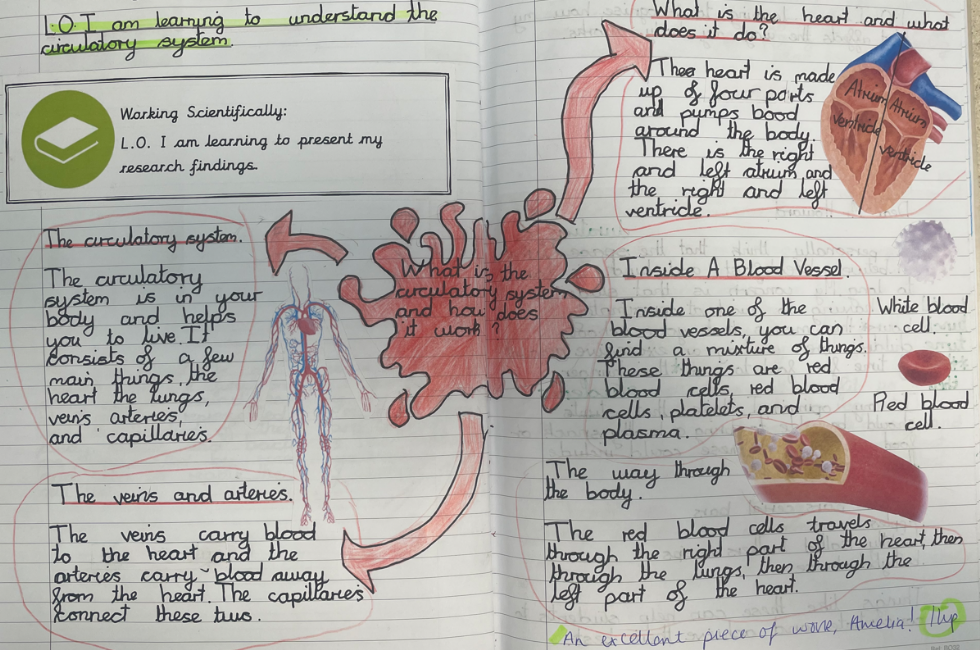 L.O. I am learning to understand the
circulatory system.
Working Scientifically:
L.O. I am learning to present my
research findings.
The circulatory system.
The circulatory
system is in your
body and helps
you to live. It
consists of a few
main things, the
heart the lungs,
veins arteries,
and capillaries.
The veins and arteries.
The veins carry blood
to the heart and the
arteries carry blood away
from the heart. The capillaries
connect these two.
What is the
circulatory system
and how does
it work?
What is the heart and what
does it do?
Thee heart is made
up of four parts
and pumps bood
around the body.
There is the right
and left atrium, and
the right and left
ventricle.
Atrium
Atrium
ventricle
ventricle
Inside A Blood Vessel.
Inside one of the
blood vessels, you can
find a mixture of things.
These things are red
blood cells, red blood
cells, platelets, and
plasma.
White blood
cell.
Red blood
cell.
The way through
the body.
The red blood cells travels
through the right part of the heart, then
through the lungs, then through the
left part of the heart.
An excellent piece of work, Amelia! 1hp